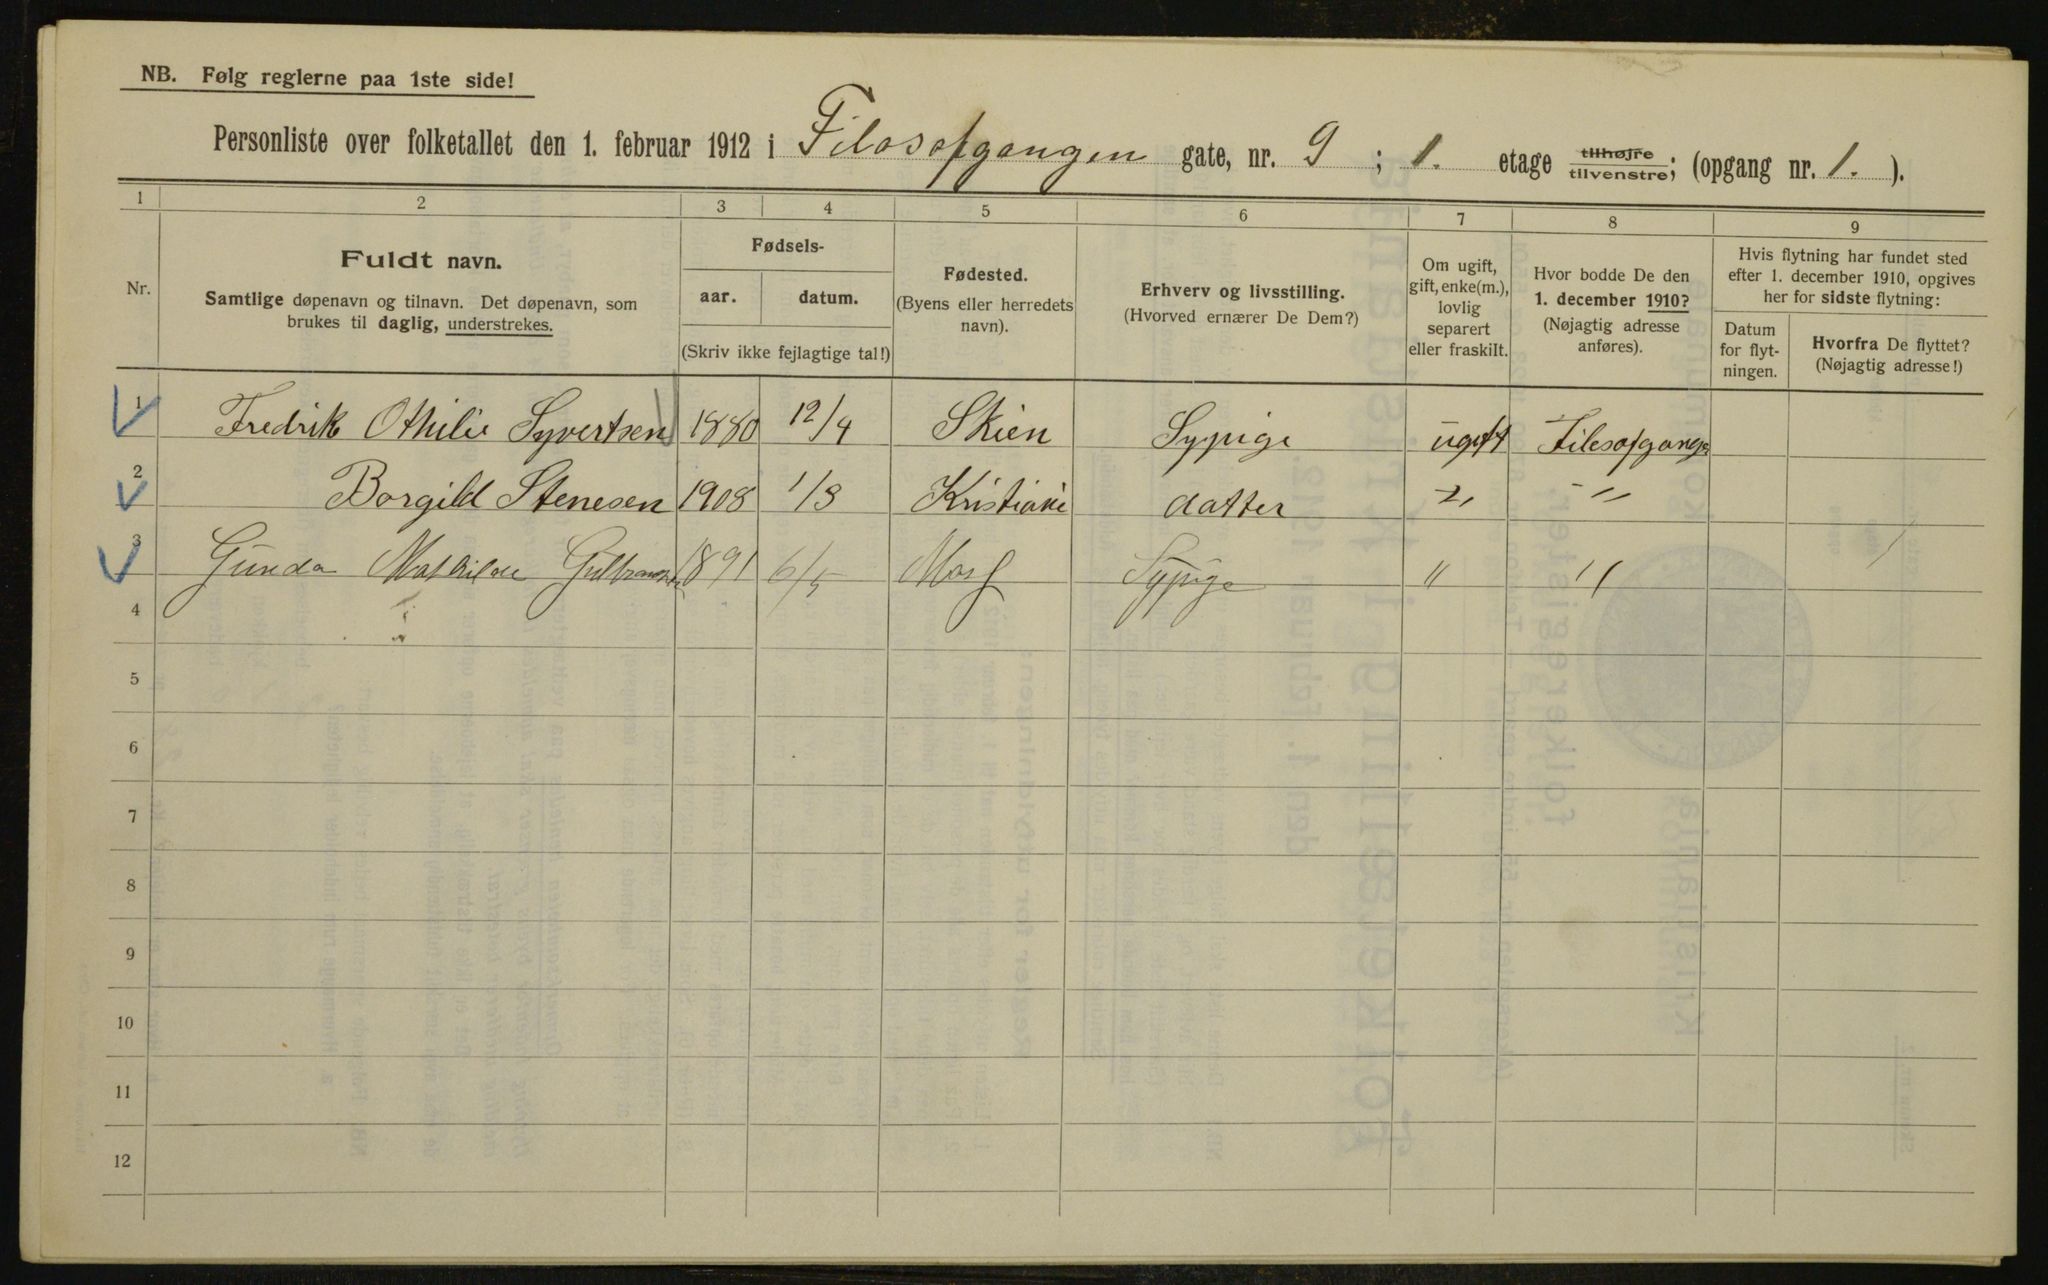 NB. Følg reglerne paa 1ste side!
Personliste over folketallet den 1. februar 1912 i Filosofgangen gate, nr. 9 ; 1. etage tilhøjre tilvenstre; (opgang nr. 1. ).
1 2 3 4 5 6 7 8 9
Nr.
Fuldt navn.
Samtlige døpenavn og tilnavn. Det døpenavn, som
brukes til daglig, understrekes.
Fødsels-
aar. datum.
(Skriv ikke fejlagtige tal!)
Fødested.
(Byens eller herredets
navn).
Erhverv og livsstilling.
(Hvorved ernærer De Dem?)
Om ugift,
gift, enke(m.),
lovlig
separert
eller fraskilt.
Hvor bodde De den
1. december 1910?
(Nøjagtig adresse
anføres).
Hvis flytning har fundet sted
efter 1. december 1910, opgives
her for sidste flytning:
Datum
for flyt-
ningen.
Hvorfra De flyttet?
(Nøjagtig adresse!)
1 Fredrik Othilie Syvertsen 1880 12/4 Skien Sypige ugift Filosofgange
2 Borgild Stenesen 1908 1/3 Kristiani datter " "
3 Gunda Mathilde 1891 6/5 Moss Sypige " "
4
5
6
7
8
9
10
11
12